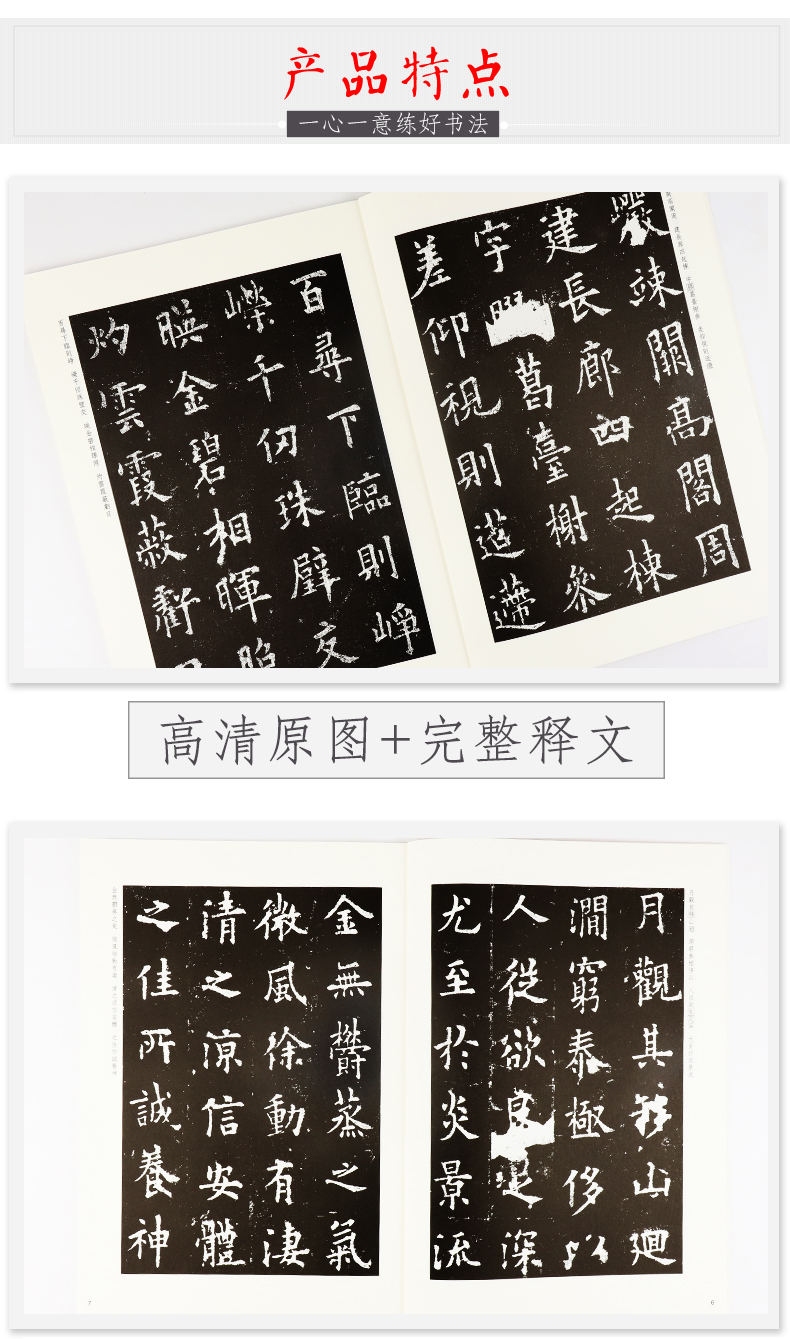 产品特点
一心一意练好书法
巖竦闕高閣周
建長廊四起棟
宇葛臺榭參
差仰視則迢遰
百尋下臨則崢
嶸千仞珠璧交
暎金碧相暉照
灼雲霞蔽虧
高清原图+完整释文
月觀其移山廻
澗窮泰極侈以
人從欲良足深
尤至於炎景流
金無欝蒸之氣
微風徐動有凄
清之涼信安體
之佳所誠養神
7
6